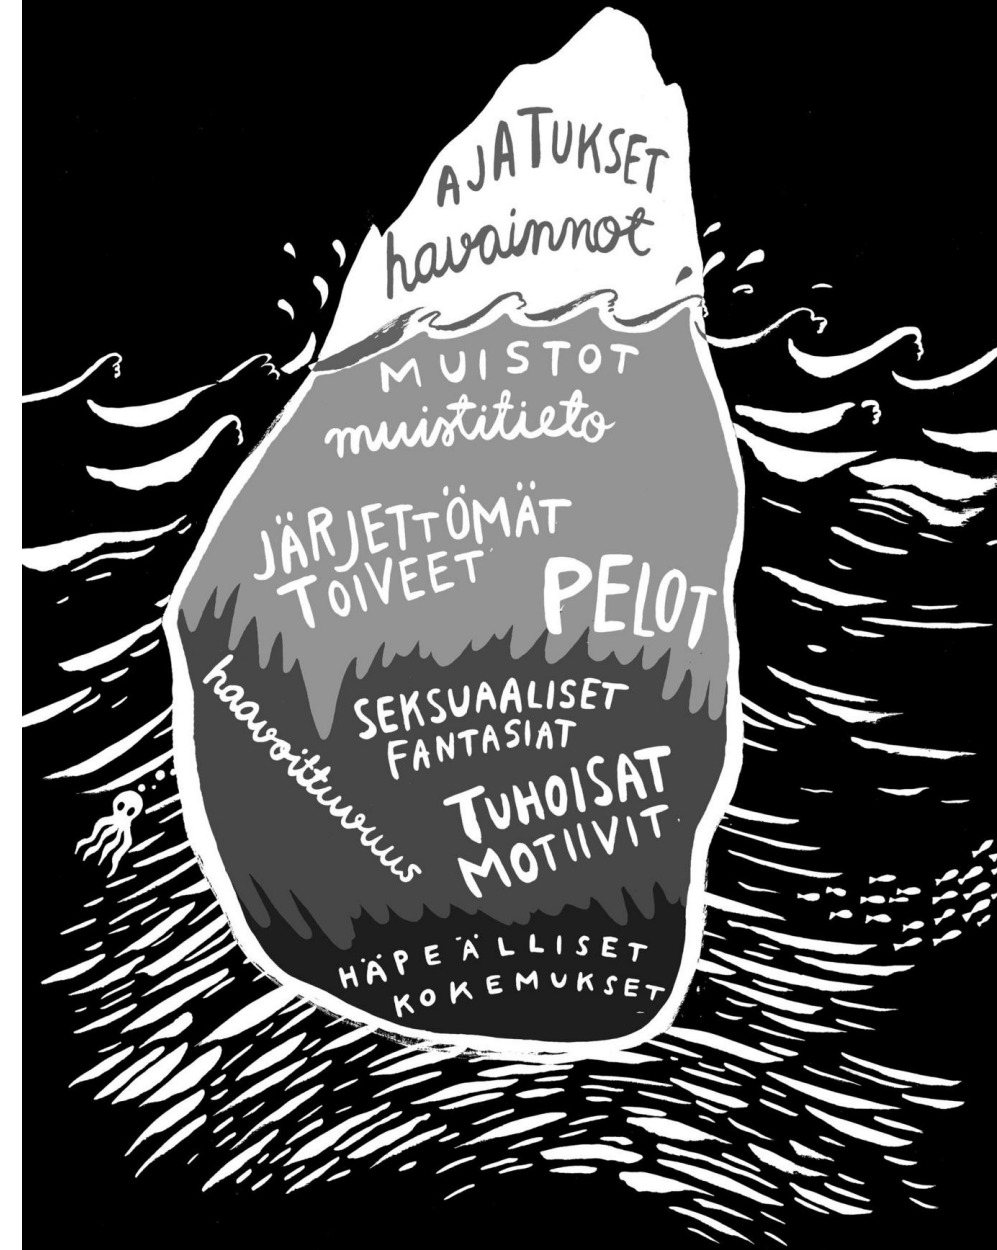 AJATUKSET
havainnot
MUISTOT
muistitieto
JÄRJETTÖMÄT
TOIVEET
PELOT
haavoittuvuus
SEKSUAALISET
FANTASIAT
TUHOISAT
MOTIIVIT
HÄPEÄLLISET
KOKEMUKSET